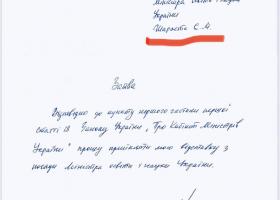 Міністра освіти і науки
України
Шкарлета С.М.
Заява
Відповідно до пункту першого частини першої
статті 18 Закону України „Про Кабінет Міністрів
України" прошу прийняти мою відставку з
посади Міністра освіти і науки України.